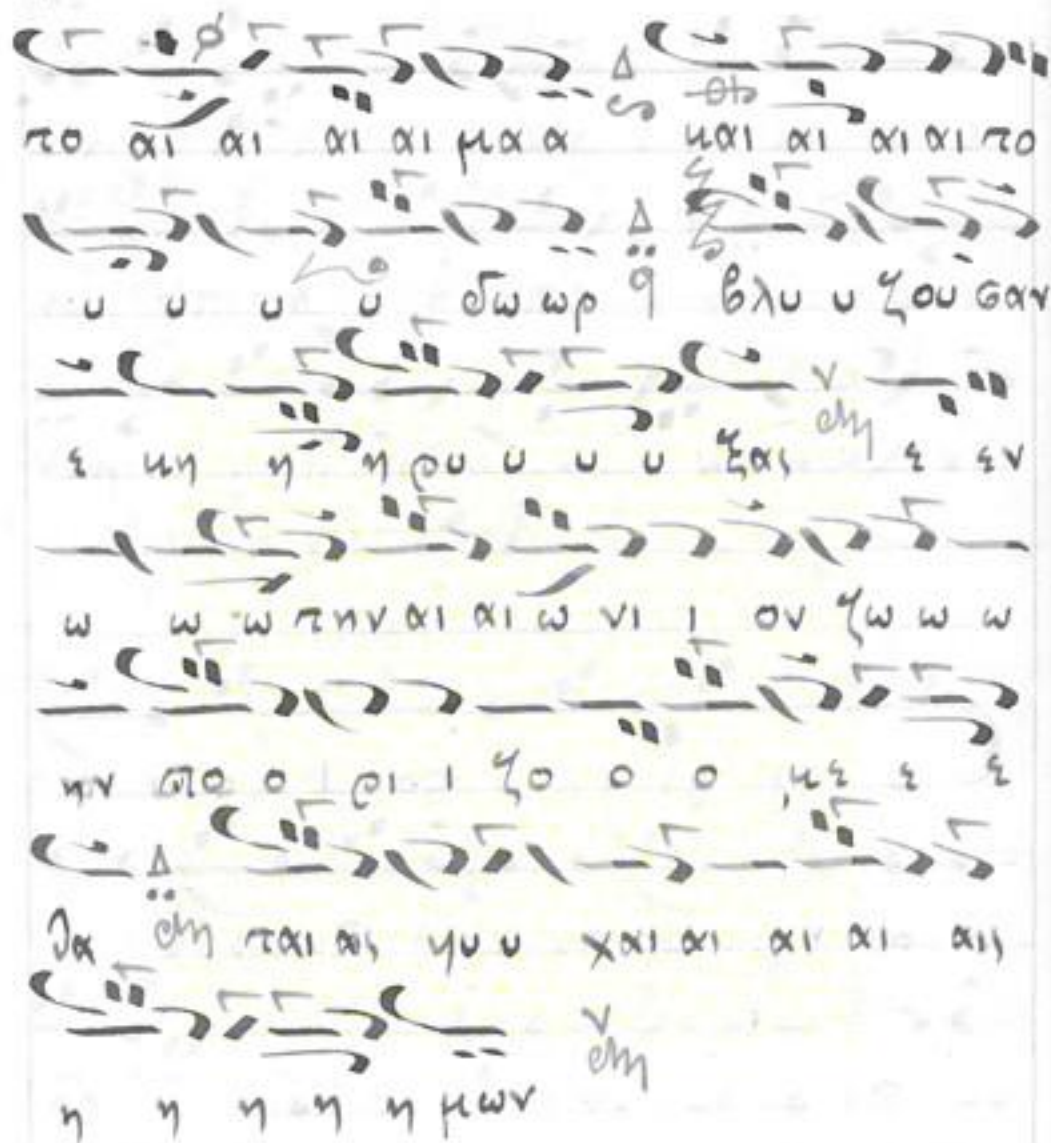 το αι αι αι αι μα α και αι αι αι το
υ υ υ υ δω ωρ βλυ υ ζου σαν
ε κη η η ρυ υ υ υ ξας ε εν
ω ω ω την αι αι ω νι ι ον ζω ω ω
ην πο ο ρι ι ζο ο ο με ε ε
θα ται ας ψυ υ χαι αι αι αι αις
η η η η η μων